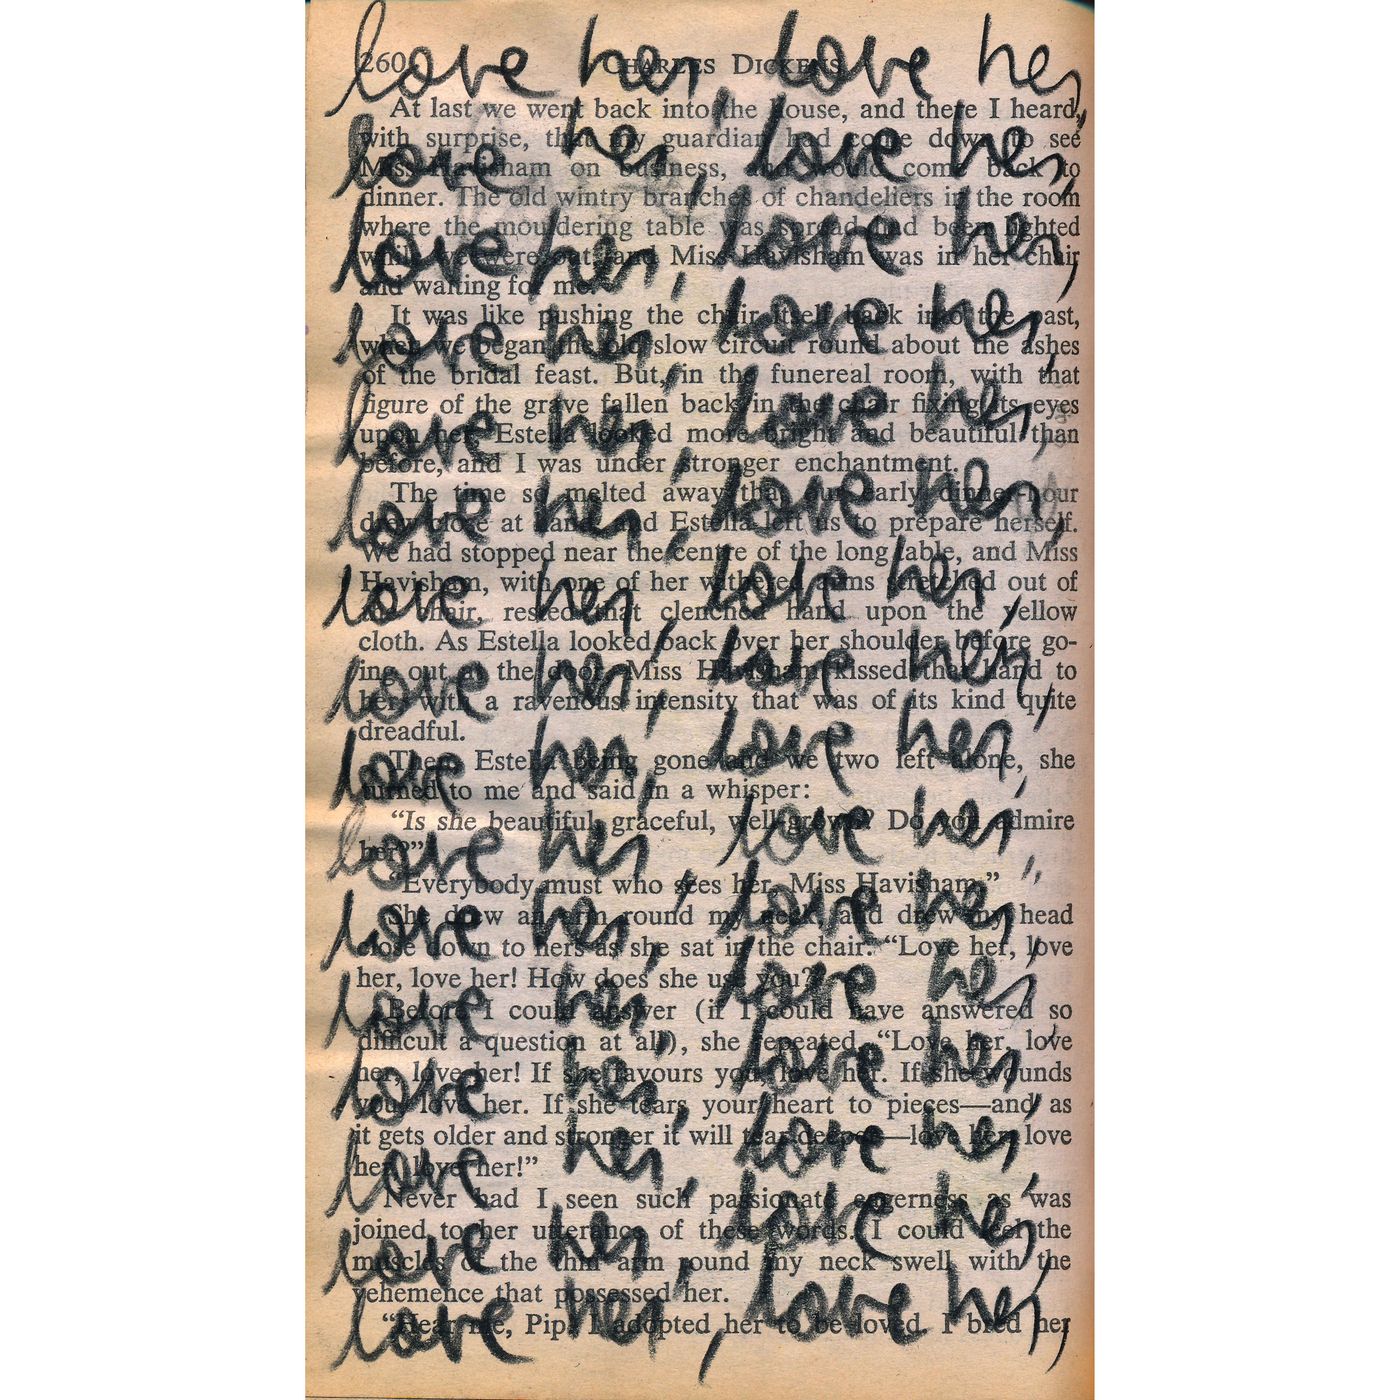 260 CHARLES DICKENS
At last we went back into the house, and there I heard,
with surprise, that my guardian had come down to see
Miss Havisham on business, and would come back to
dinner. The old wintry branches of chandeliers in the room
where the mouldering table was spread had been lighted
while we were out, and Miss Havisham was in her chair
and waiting for me.
It was like pushing the chair itself back into the past,
when we began the old slow circuit round about the ashes
of the bridal feast. But, in the funereal room, with that
figure of the grave fallen back in the chair fixing its eyes
upon her, Estella looked more bright and beautiful than
before, and I was under stronger enchantment.
The time so melted away, that our early dinner-hour
drew close at hand, and Estella left us to prepare herself.
We had stopped near the centre of the long table, and Miss
Havisham, with one of her withered arms stretched out of
the chair, rested that clenched hand upon the yellow
cloth. As Estella looked back over her shoulder before go-
ing out at the door, Miss Havisham kissed that hand to
her, with a ravenous intensity that was of its kind quite
dreadful.
Then, Estella being gone and we two left alone, she
turned to me and said in a whisper:
“Is she beautiful, graceful, well-grown? Do you admire
her?”
“Everybody must who sees her, Miss Havisham.”
She drew an arm round my neck, and drew my head
close down to hers as she sat in the chair. “Love her, love
her, love her! How does she use you?”
Before I could answer (if I could have answered so
difficult a question at all), she repeated, “Love her, love
her, love her! If she favours you, love her. If she wounds
you, love her. If she tears your heart to pieces—and as
it gets older and stronger it will tear deeper—love her, love
her, love her!”
Never had I seen such passionate eagerness as was
joined to her utterance of these words. I could feel the
muscles of the thin arm round my neck swell with the
vehemence that possessed her.
“Hear me, Pip! I adopted her to be loved. I bred her
love her, love her,
love her, love her,
love her, love her,
love her, love her,
love her, love her,
love her, love her,
love her, love her,
love her, love her,
love her, love her,
love her, love her,
love her, love her,
love her, love her,
love her, love her,
love her, love her,
love her, love her,
love her, love her,